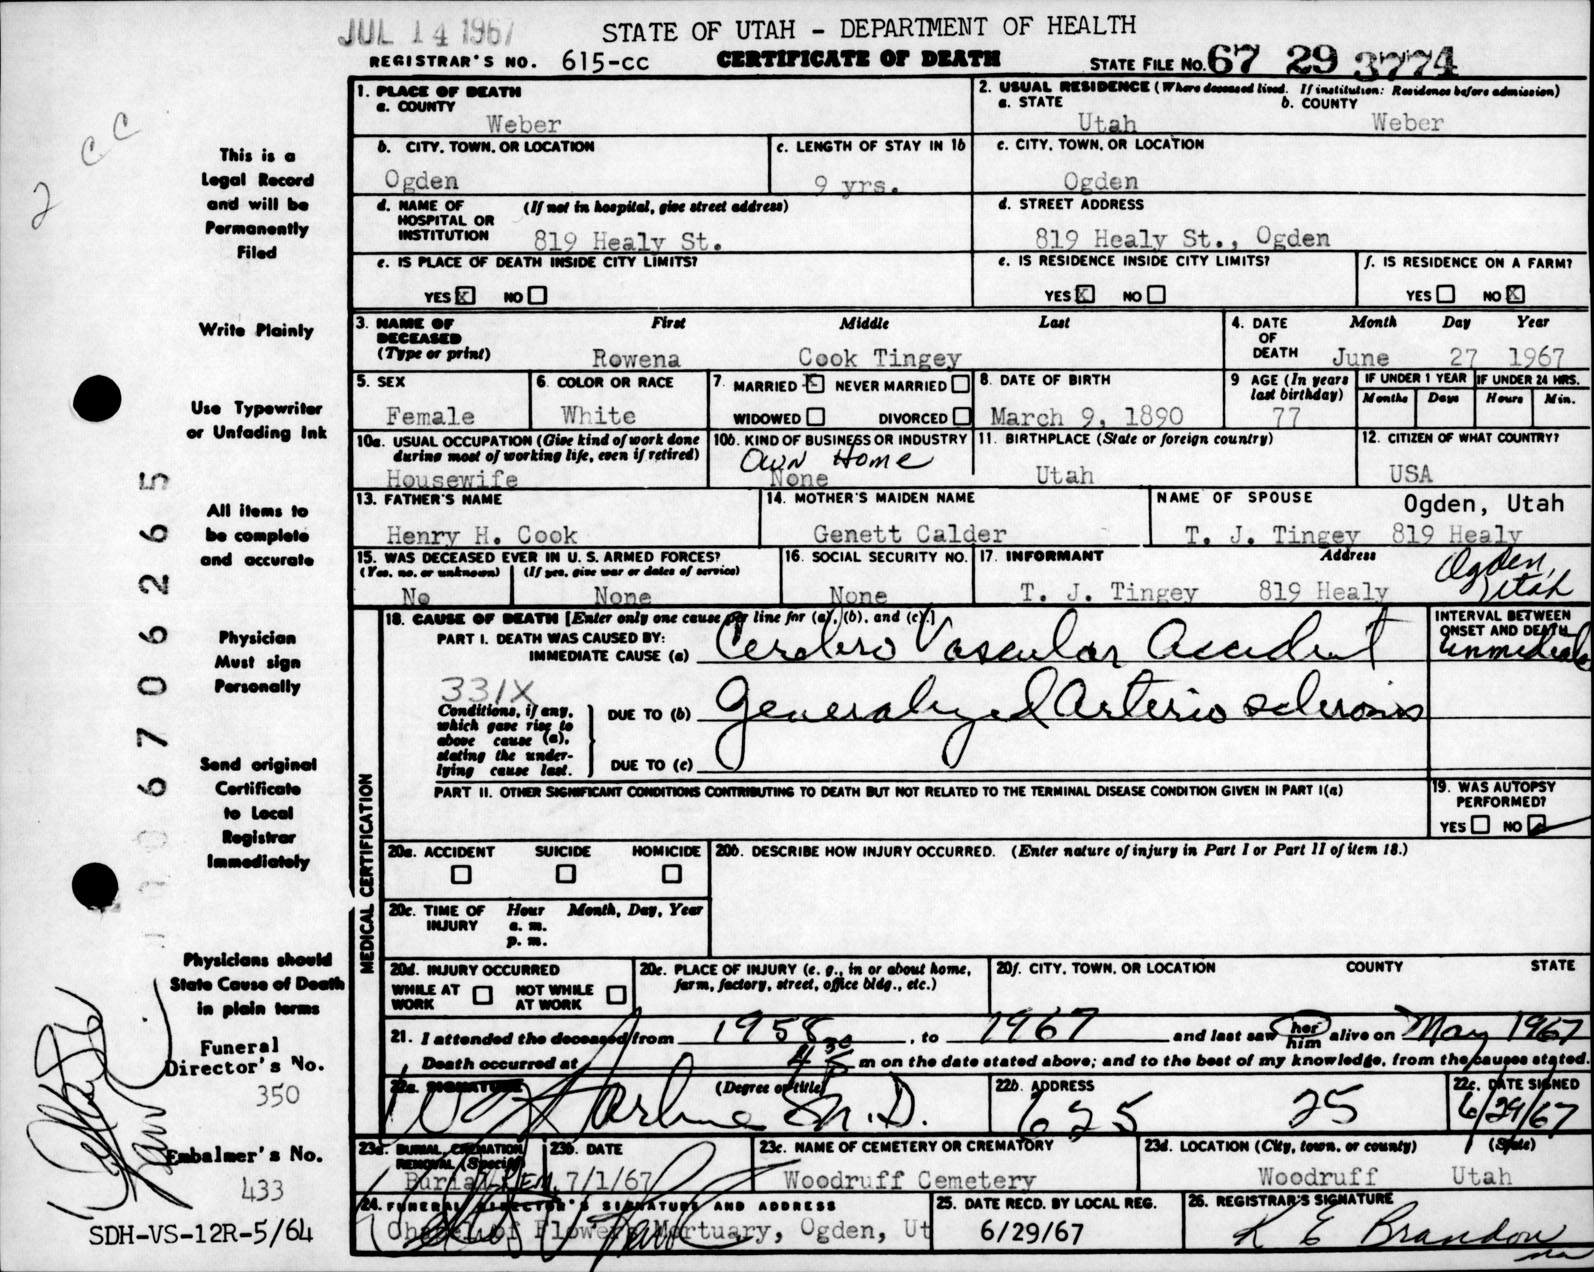 JUL 14 1967
STATE OF UTAH - DEPARTMENT OF HEALTH
REGISTRAR'S NO. 615-cc CERTIFICATE OF DEATH STATE FILE NO. 67 29 3774
2 cc
This is a
Legal Record
and will be
Permanently
Filed
Write Plainly
Use Typewriter
or Unfading Ink
All items to
be complete
and accurate
Physician
Must sign
Personally
Send original
Certificate
to Local
Registrar
Immediately
Physicians should
State Cause of Death
in plain terms
Funeral
Director's No.
350
Embalmer's No.
433
SDH-VS-12R-5/64
67062265
1. PLACE OF DEATH
a. COUNTY
Weber
2. USUAL RESIDENCE (Where deceased lived. If institution: Residence before admission)
a. STATE b. COUNTY
Utah Weber
b. CITY, TOWN, OR LOCATION
Ogden
c. LENGTH OF STAY IN 1b
9 yrs.
c. CITY, TOWN, OR LOCATION
Ogden
d. NAME OF HOSPITAL OR INSTITUTION (If not in hospital, give street address)
819 Healy St.
d. STREET ADDRESS
819 Healy St., Ogden
e. IS PLACE OF DEATH INSIDE CITY LIMITS?
YES X NO
e. IS RESIDENCE INSIDE CITY LIMITS?
YES X NO
f. IS RESIDENCE ON A FARM?
YES NO X
3. NAME OF DECEASED (Type or print) First Middle Last
Rowena Cook Tingey
4. DATE OF DEATH Month Day Year
June 27 1967
5. SEX
Female
6. COLOR OR RACE
White
7. MARRIED X NEVER MARRIED
WIDOWED DIVORCED
8. DATE OF BIRTH
March 9, 1890
9 AGE (In years last birthday)
77
IF UNDER 1 YEAR IF UNDER 24 HRS.
Months Days Hours Min.
10a. USUAL OCCUPATION (Give kind of work done during most of working life, even if retired)
Housewife
10b. KIND OF BUSINESS OR INDUSTRY
Own Home
None
11. BIRTHPLACE (State or foreign country)
Utah
12. CITIZEN OF WHAT COUNTRY?
USA
13. FATHER'S NAME
Henry H. Cook
14. MOTHER'S MAIDEN NAME
Genett Calder
NAME OF SPOUSE Ogden, Utah
T. J. Tingey 819 Healy
15. WAS DECEASED EVER IN U. S. ARMED FORCES?
(Yes, no, or unknown) (If yes, give war or dates of service)
No None
16. SOCIAL SECURITY NO.
None
17. INFORMANT Address
T. J. Tingey 819 Healy Ogden, Utah
MEDICAL CERTIFICATION
18. CAUSE OF DEATH [Enter only one cause per line for (a), (b), and (c).]
PART I. DEATH WAS CAUSED BY:
IMMEDIATE CAUSE (a) Cerebro Vascular Accident
INTERVAL BETWEEN ONSET AND DEATH
immediate
331X
Conditions, if any, which gave rise to above cause (a), stating the underlying cause last.
DUE TO (b) Generalized Arterio sclerosis
DUE TO (c)
PART II. OTHER SIGNIFICANT CONDITIONS CONTRIBUTING TO DEATH BUT NOT RELATED TO THE TERMINAL DISEASE CONDITION GIVEN IN PART I(a)
19. WAS AUTOPSY PERFORMED?
YES NO
20a. ACCIDENT SUICIDE HOMICIDE
20b. DESCRIBE HOW INJURY OCCURRED. (Enter nature of injury in Part I or Part II of item 18.)
20c. TIME OF INJURY Hour Month, Day, Year
a. m.
p. m.
20d. INJURY OCCURRED
WHILE AT WORK NOT WHILE AT WORK
20e. PLACE OF INJURY (e. g., in or about home, farm, factory, street, office bldg., etc.)
20f. CITY, TOWN, OR LOCATION COUNTY STATE
21. I attended the deceased from 1958, to 1967 and last saw her him alive on May 1967
Death occurred at m on the date stated above; and to the best of my knowledge, from the causes stated.
22a. SIGNATURE (Degree or title)
M.D.
22b. ADDRESS
625 25
22c. DATE SIGNED
6/29/67
23a. BURIAL, CREMATION REMOVAL (Specify)
Burial REM
23b. DATE
7/1/67
23c. NAME OF CEMETERY OR CREMATORY
Woodruff Cemetery
23d. LOCATION (City, town, or county) (State)
Woodruff Utah
24. FUNERAL DIRECTOR'S SIGNATURE AND ADDRESS
Chapel of Flowers Mortuary, Ogden, Ut
25. DATE RECD. BY LOCAL REG.
6/29/67
26. REGISTRAR'S SIGNATURE
K E Brandon